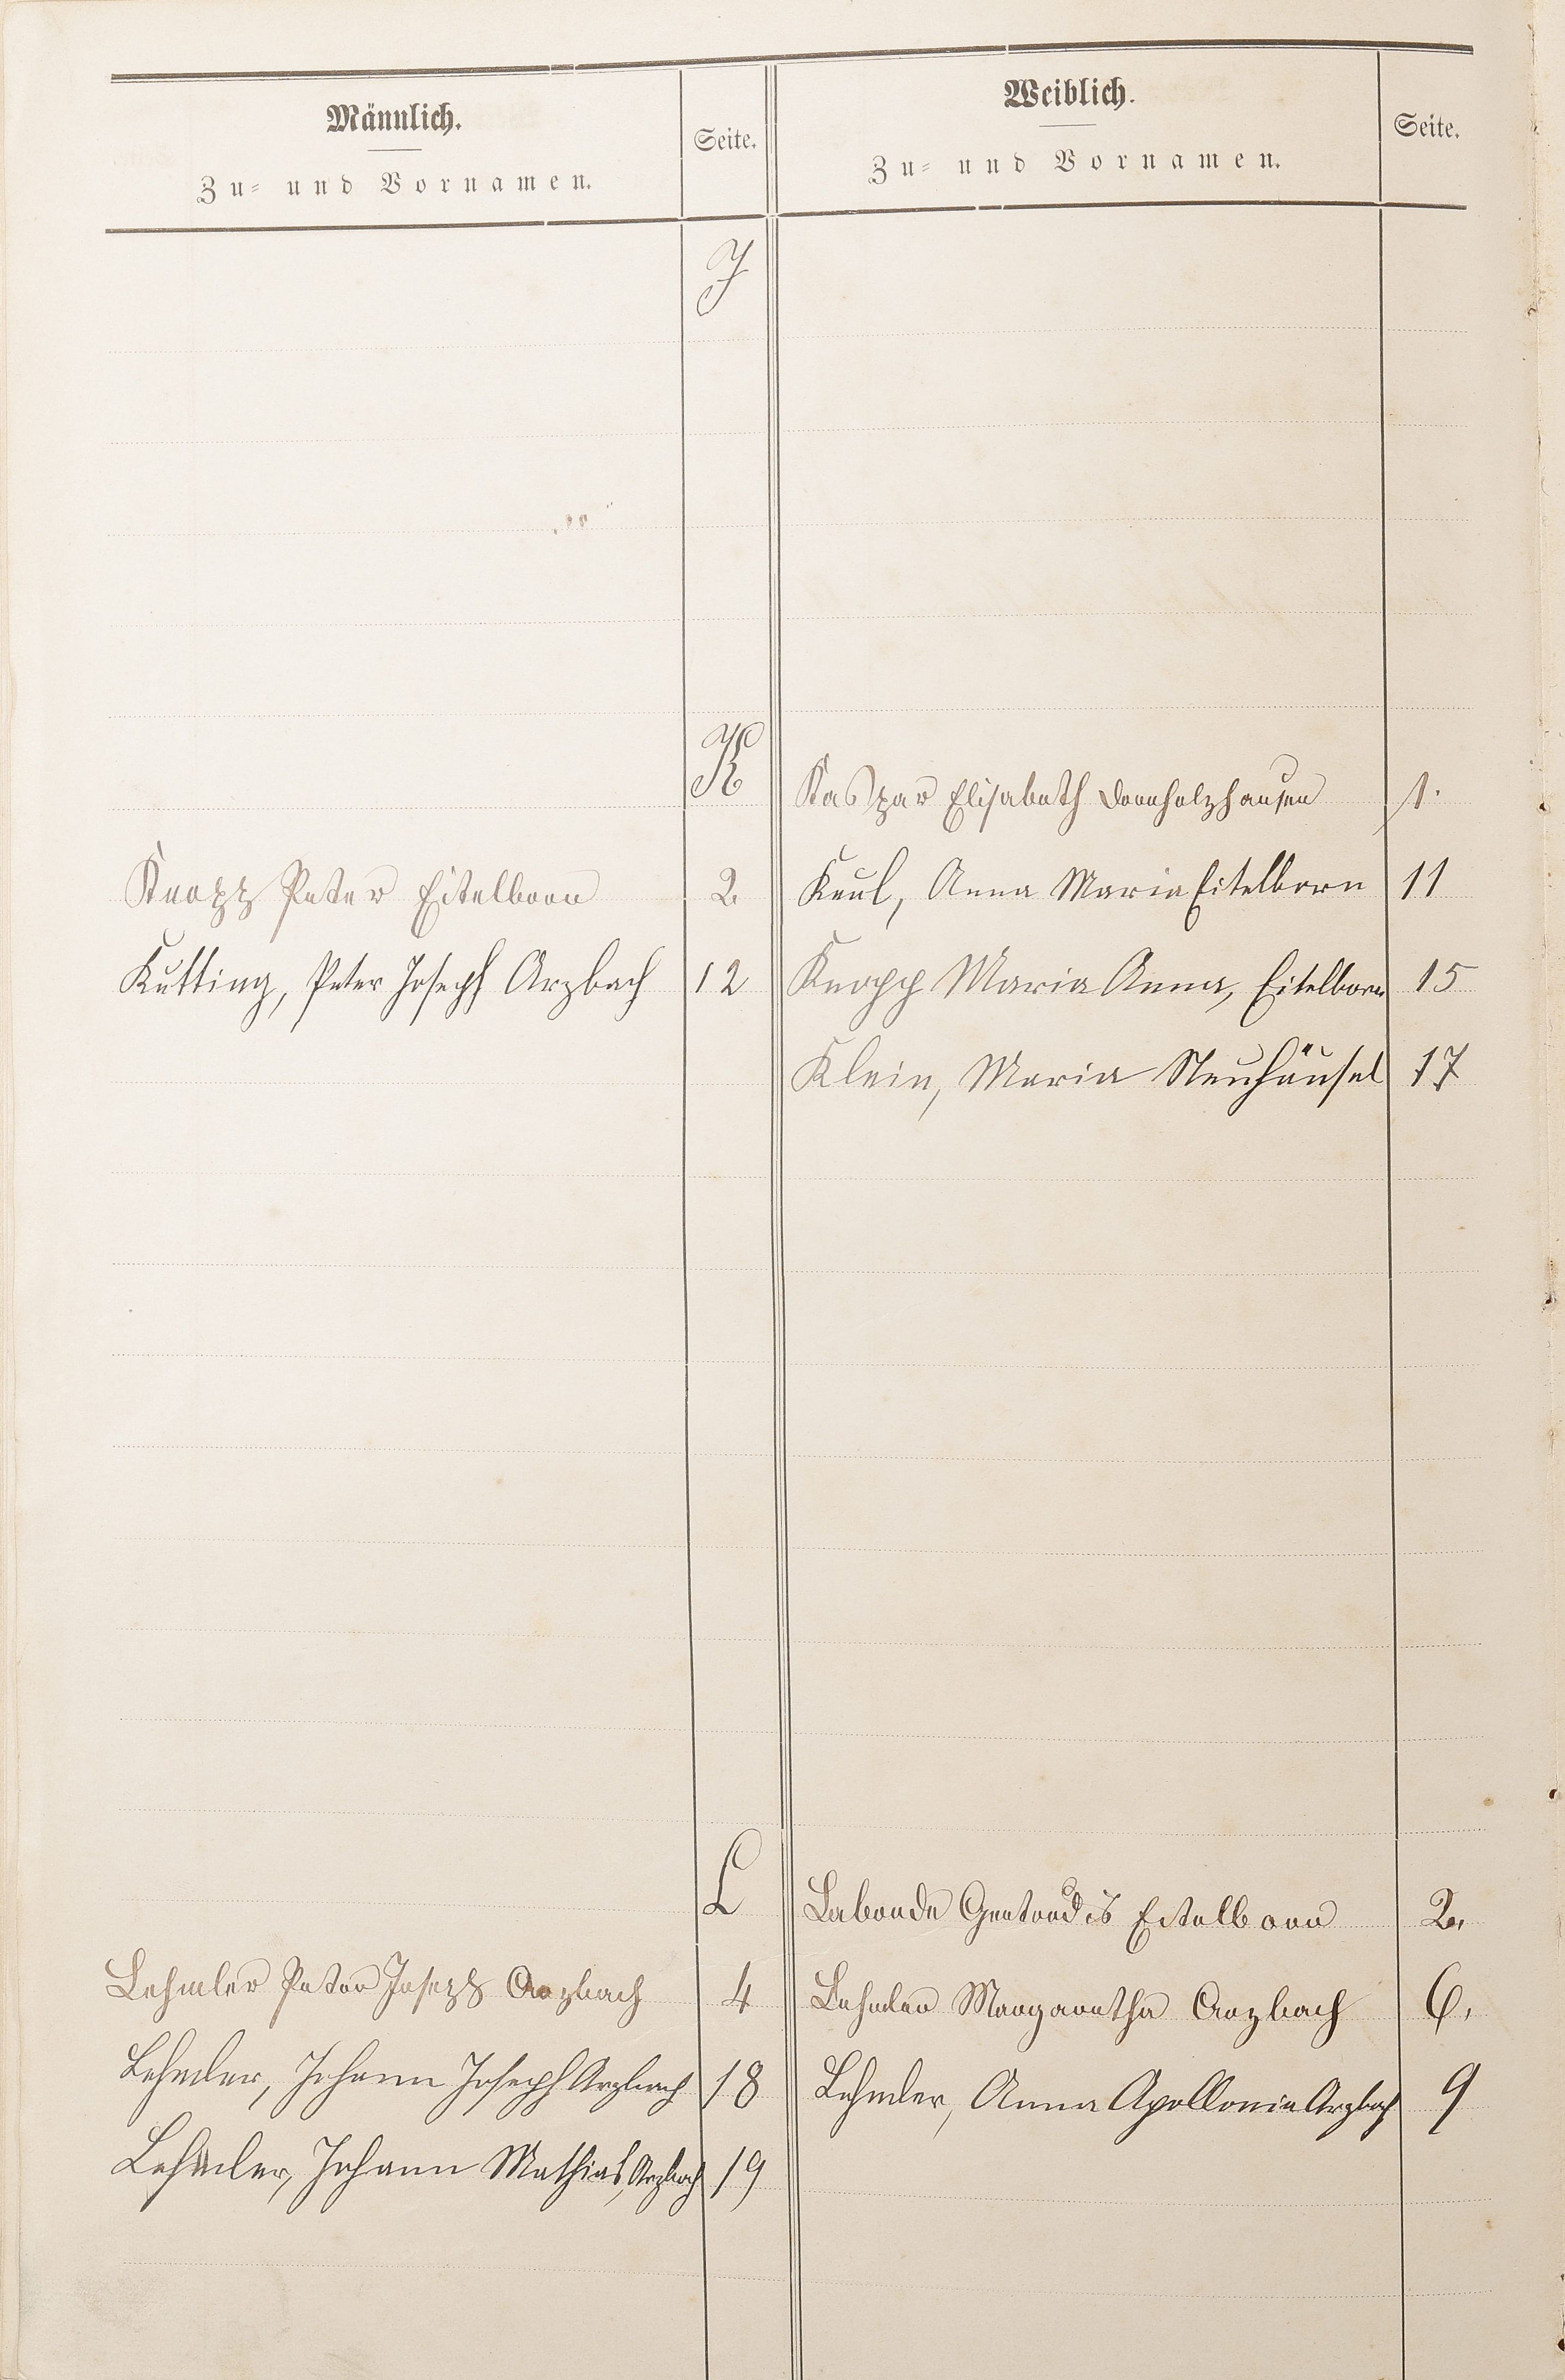 Männlich.
Zu- und Vornamen.
Seite.
Weiblich.
Zu- und Vornamen.
Seite.
J
K
Kaspar Elisabeth Dornholzhausen 1.
Knopp Peter Eitelborn 2. Keul, Anna Maria Eitelborn 11
Kutting, Peter Joseph Arzbach 12 Knopp Maria Anna, Eitelborn 15
Klein, Maria Neuhäusel 17
L
Labonde Gertrudis Eitelborn 2.
Lehmler Peter Joseph Arzbach 4 Lehmler Margaretha Arzbach 6.
Lehmler, Johann Joseph Arzbach 18 Lehmler, Anna Apollonia Arzbach 9
Lehmler, Johann Mathias, Arzbach 19